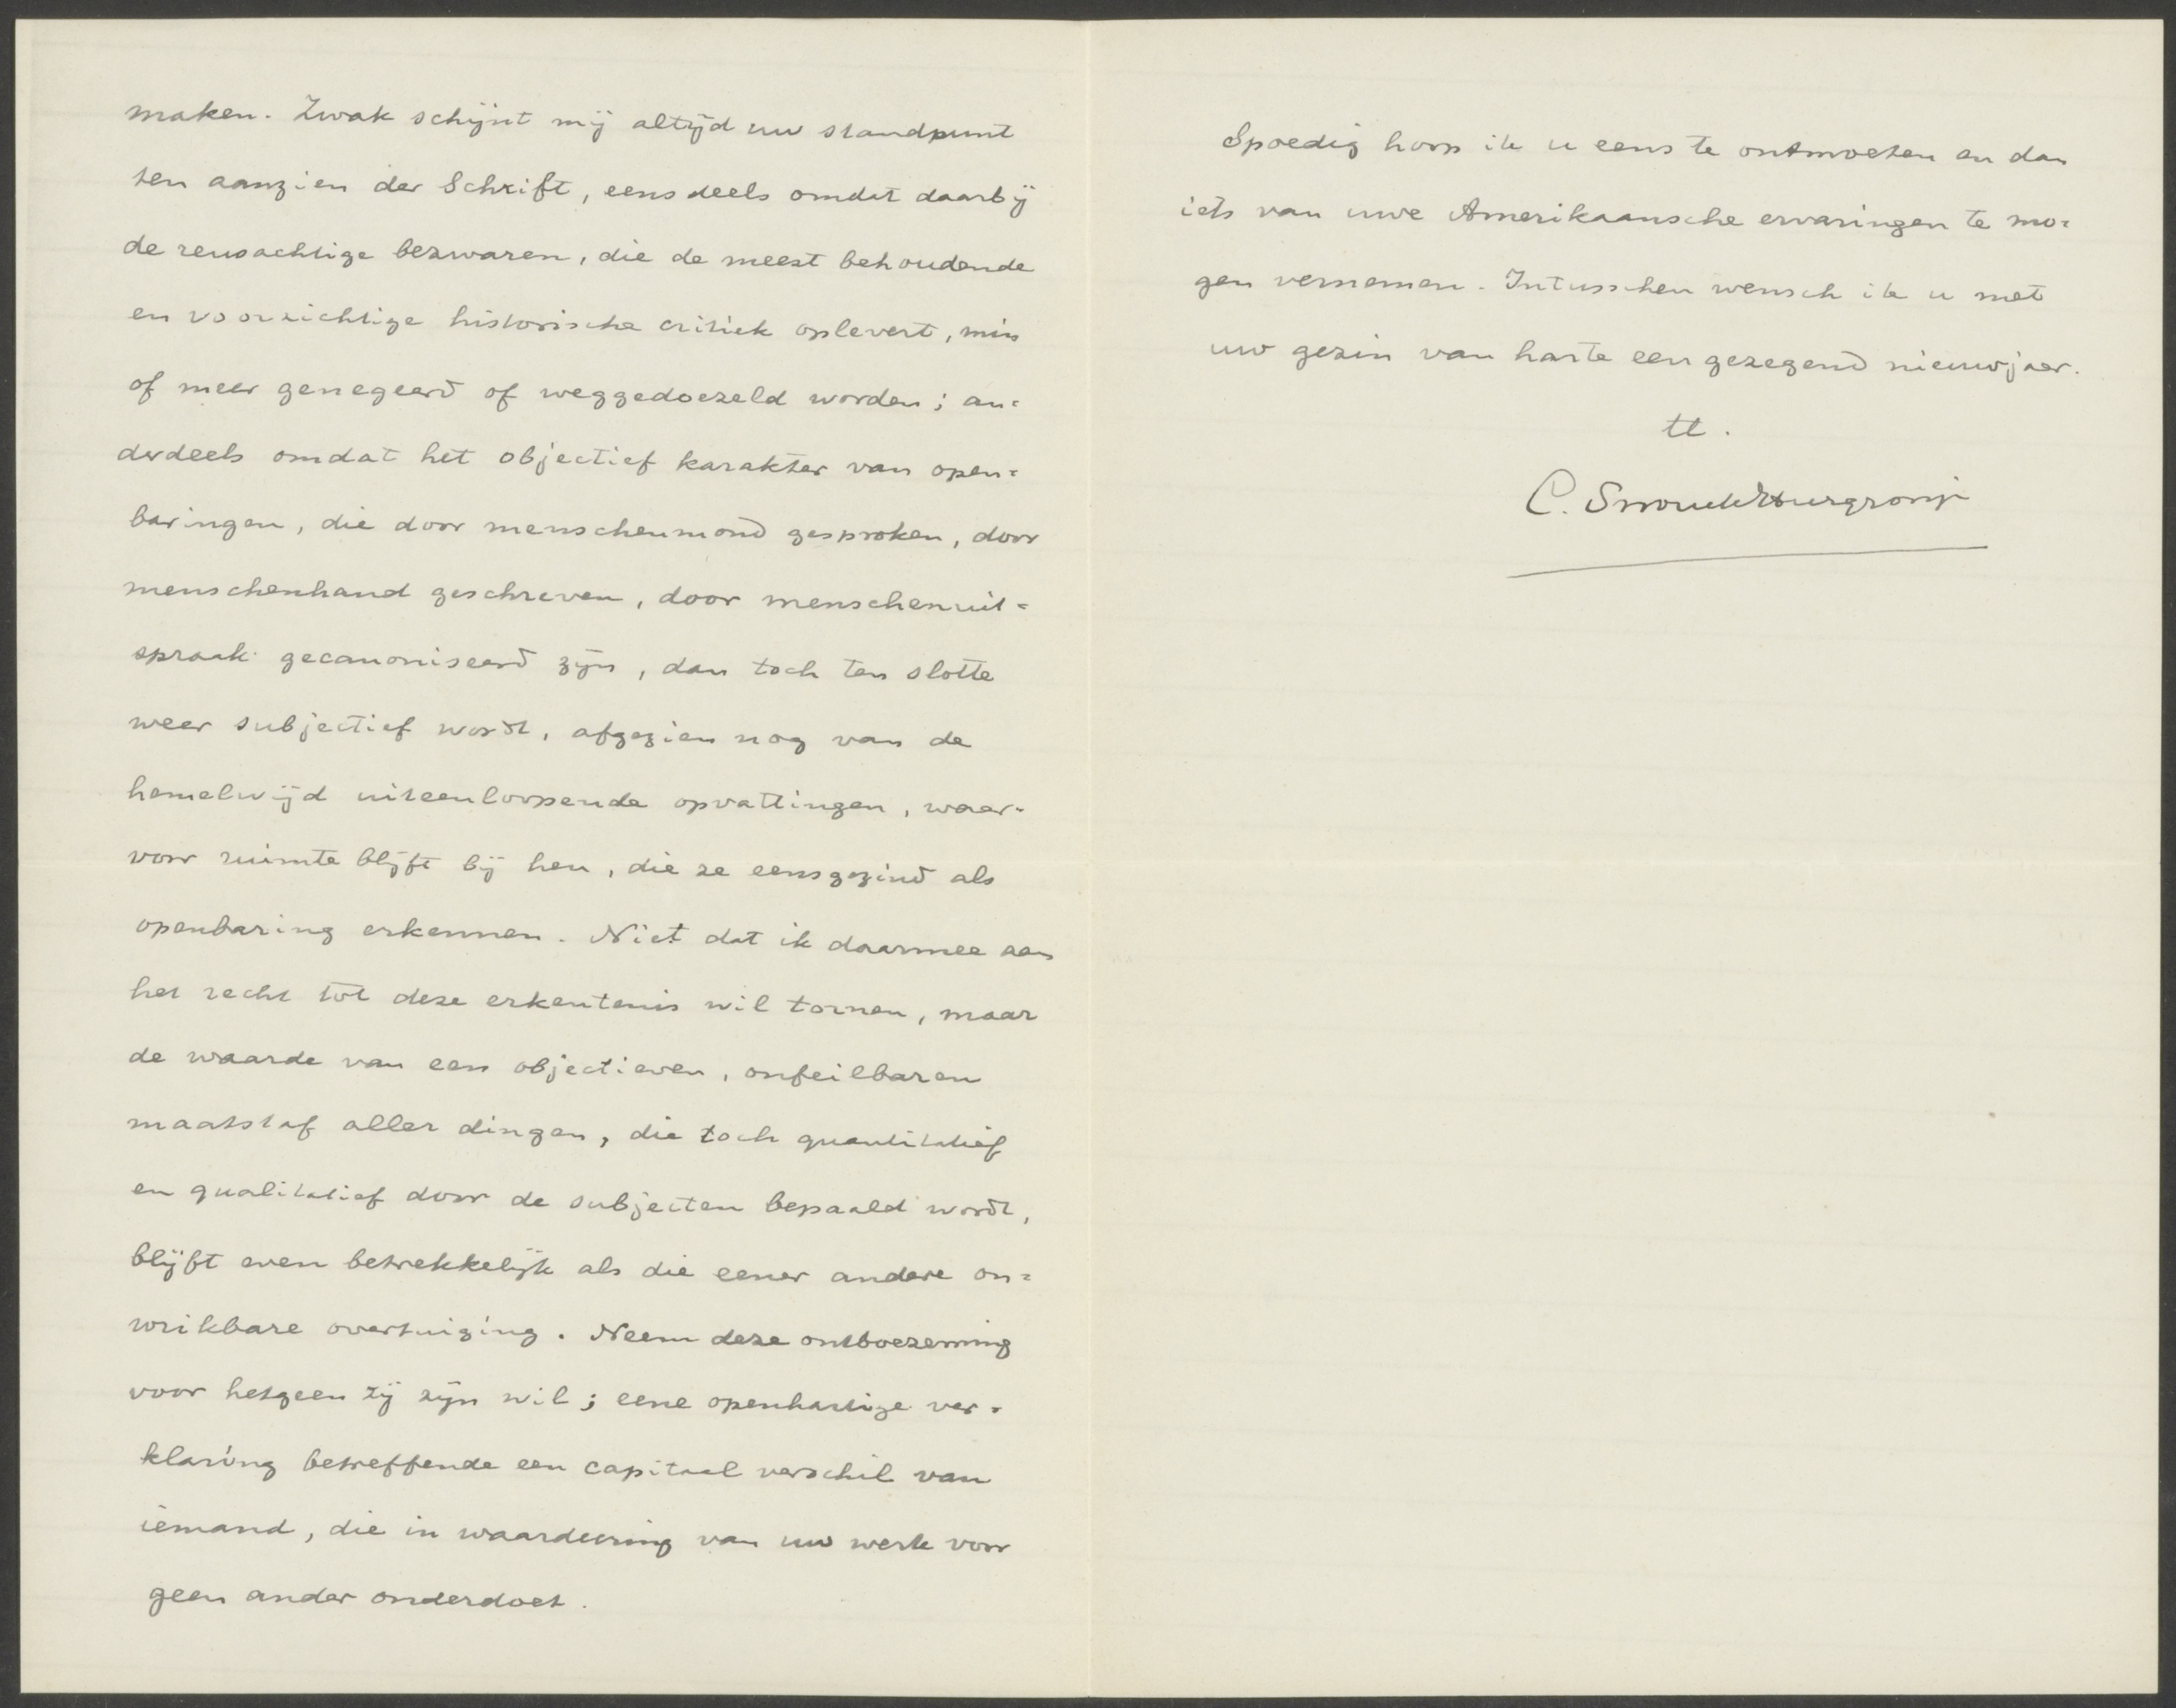 maken. Zwak schijnt mij altijd uw standpunt
ten aanzien der Schrift, eensdeels omdat daarbij
de reusachtige bezwaren, die de meest behoudende
en voorzichtige historische critiek oplevert, min
of meer genegeerd of weggedoezeld worden; an=
derdeels omdat het objectief karakter van open=
baringen, die door menschenmond gesproken, door
menschenhand geschreven, door menschenuit=
spraak gecanoniseerd zijn, dan toch ten slotte
weer subjectief wordt, afgezien nog van de
hemelwijd uiteenloopende opvattingen, waar=
voor ruimte blijft bij hen, die ze eensgezind als
openbaring erkennen. Niet dat ik daarmee aan
het recht tot deze erkentenis wil tornen, maar
de waarde van een objectieven, onfeilbaren
maatstaf aller dingen, die toch quantitatief
en qualitatief door de subjecten bepaald wordt,
blijft even betrekkelijk als die eener andere on=
wrikbare overtuiging. Neem deze ontboezeming
voor hetgeen zij zijn wil; eene openhartige ver=
klaring betreffende een capitaal verschil van
iemand, die in waardeering van uw werk voor
geen ander onderdoet.
Spoedig hoop ik u eens te ontmoeten en dan
iets van uwe Amerikaansche ervaringen te mo=
gen vernemen. Intusschen wensch ik u met
uw gezin van harte een gezegend nieuwjaar.
tt.
C. Snouck Hurgronje